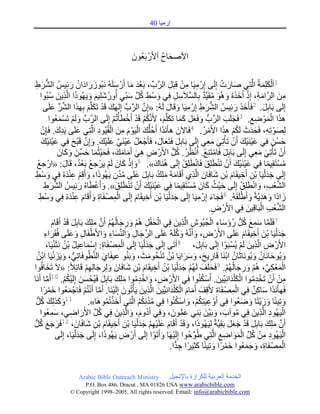 إرميا 40
الأصحَاحُ الأَرْبَعُونَ
1اَلْكَلِمَةُ الَّتِي صَارَتْ إِلَى إِرْمِيَا مِنْ قِبَلِ الرَّبِّ، بَعْدَ مَا أَرْسَلَهُ نَبُوزَرَادَانُ رَئِيسُ الشُّرَطِ
مِنَ الرَّامَةِ، إِذْ أَخَذَهُ وَهُوَ مُقَيَّدٌ بِالسَّلاَسِلِ فِي وَسْطِ كُلِّ سَبْيِ أُورُشَلِيمَ وَيَهُوذَا الَّذِينَ سُبُوا
إِلَى بَابِلَ. 2فَأَخَذَ رَئِيسُ الشُّرَطِ إِرْمِيَا وَقَالَ لَهُ: «إِنَّ الرَّبَّ إِلهَكَ قَدْ تَكَلَّمَ بِهذَا الشَّرِّ عَلَى
هذَا الْمَوْضِعِ. 3فَجَلَبَ الرَّبُّ وَفَعَلَ كَمَا تَكَلَّمَ، لأَنَّكُمْ قَدْ أَخْطَأْتُمْ إِلَى الرَّبِّ وَلَمْ تَسْمَعُوا
لِصَوْتِهِ، فَحَدَثَ لَكُمْ هذَا الأَمْرُ. 4فَالآنَ هأَنَذَا أَحُلُّكَ الْيَوْمَ مِنَ الْقُيُودِ الَّتِي عَلَى يَدِكَ. فَإِنْ
حَسُنَ فِي عَيْنَيْكَ أَنْ تَأْتِيَ مَعِي إِلَى بَابِلَ فَتَعَالَ، فَأَجْعَلُ عَيْنَيَّ عَلَيْكَ. وَإِنْ قَبُحَ فِي عَيْنَيْكَ
أَنْ تَأْتِيَ مَعِي إِلَى بَابِلَ فَامْتَنِعْ. اُنْظُرْ. كُلُّ الأَرْضِ هِيَ أَمَامَكَ، فَحَيْثُمَا حَسُنَ وَكَانَ
مُسْتَقِيمًا فِي عَيْنَيْكَ أَنْ تَنْطَلِقَ فَانْطَلِقْ إِلَى هُنَاكَ». 5وَإِذْ كَانَ لَمْ يَرْجعْ بَعْدُ، قَالَ: «ارْجعْ
إِلَى جَدَلْيَا بْنِ أَخِيقَامَ بْنِ شَافَانَ الَّذِي أَقَامَهُ مَلِكُ بَابِلَ عَلَى مُدُنِ يَهُوذَا، وَأَقِمْ عِنْدَهُ فِي وَسْطِ
الشَّعْبِ، وَانْطَلِقْ إِلَى حَيْثُ كَانَ مُسْتَقِيمًا فِي عَيْنَيْكَ أَنْ تَنْطَلِقَ». وَأَعْطَاهُ رَئِيسُ الشُّرَطِ
زَادًا وَهَدِيَّةً وَأَطْلَقَهُ. 6فَجَاءَ إِرْمِيَا إِلَى جَدَلْيَا بْنِ أَخِيقَامَ إِلَى الْمِصْفَاةِ وَأَقَامَ عِنْدَهُ فِي وَسْطِ
الشَّعْبِ الْبَاقِينَ فِي الأَرْضِ.
7فَلَمَّا سَمِعَ كُلُّ رُؤَسَاءِ الْجُيُوشِ الَّذِينَ فِي الْحَقْلِ هُمْ وَرِجَالُهُمْ أَنَّ مَلِكَ بَابِلَ قَدْ أَقَامَ
جَدَلْيَا بْنَ أَخِيقَامَ عَلَى الأَرْضِ، وَأَنَّهُ وَكَّلَهُ عَلَى الرِّجَالِ وَالنِّسَاءِ وَالأَطْفَالِ وَعَلَى فُقَرَاءِ
الأَرْضِ الَّذِينَ لَمْ يُسْبَوْا إِلَى بَابِلَ، 8أَتَى إِلَى جَدَلْيَا إِلَى الْمِصْفَاةِ: إِسْمَاعِيلُ بْنُ نَثَنْيَا،
وَيُوحَانَانُ وَيُونَاثَانُ ابْنَا قَارِيحَ، وَسَرَايَا بْنُ تَنْحُومَثَ، وَبَنُو عِيفَايَ النَّطُوفَاتِيِّ، وَيَزَنْيَا ابْنُ
الْمَعْكِيِّ، هُمْ وَرِجَالُهُمْ. 9فَحَلَفَ لَهُمْ جَدَلْيَا بْنُ أَخِيقَامَ بْنِ شَافَانَ وَلِرِجَالِهِمْ قَائِلاً: «لاَ تَخَافُوا
مِنْ أَنْ تَخْدِمُوا الْكَلْدَانِيِّينَ. اُسْكُنُوا فِي الأَرْضِ، وَاخْدِمُوا مَلِكَ بَابِلَ فَيُحْسَنَ إِلَيْكُمْ. 10أَمَّا أَنَا
فَهأَنَذَا سَاكِنٌ فِي الْمِصْفَاةِ لأَقِفَ أَمَامَ الْكَلْدَانِيِّينَ الَّذِينَ يَأْتُونَ إِلَيْنَا. أَمَّا أَنْتُمْ فَاجْمَعُوا خَمْرًا
وَتِينًا وَزَيْتًا وَضَعُوا فِي أَوْعِيَتِكُمْ، وَاسْكُنُوا فِي مُدُنِكُمُ الَّتِي أَخَذْتُمُوهَا». 11وَكَذلِكَ كُلُّ
الْيَهُودِ الَّذِينَ فِي مُوآبَ، وَبَيْنَ بَنِي عَمُّونَ، وَفِي أَدُومَ، وَالَّذِينَ فِي كُلِّ الأَرَاضِي، سَمِعُوا
أَنَّ مَلِكَ بَابِلَ قَدْ جَعَلَ بَقِيَّةً لِيَهُوذَا، وَقَدْ أَقَامَ عَلَيْهِمْ جَدَلْيَا بْنَ أَخِيقَامَ بْنِ شَافَانَ، 12فَرَجَعَ كُلُّ
الْيَهُودِ مِنْ كُلِّ الْمَوَاضِعِ الَّتِي طُوِّحُوا إِلَيْهَا وَأَتَوْا إِلَى أَرْضِ يَهُوذَا، إِلَى جَدَلْيَا، إِلَى
الْمِصْفَاةِ، وَجَمَعُوا خَمْرًا وَتِينًا كَثِيرًا جِدًّا.
Arabic Bible Outreach Ministry الخدمة العربية للكرازة بالإنجيل
P.O. Box 486, Dracut , MA 01826 USA www.arabicbible.com
© Copyright 1998–2005, All rights reserved. Email: info@arabicbible.com